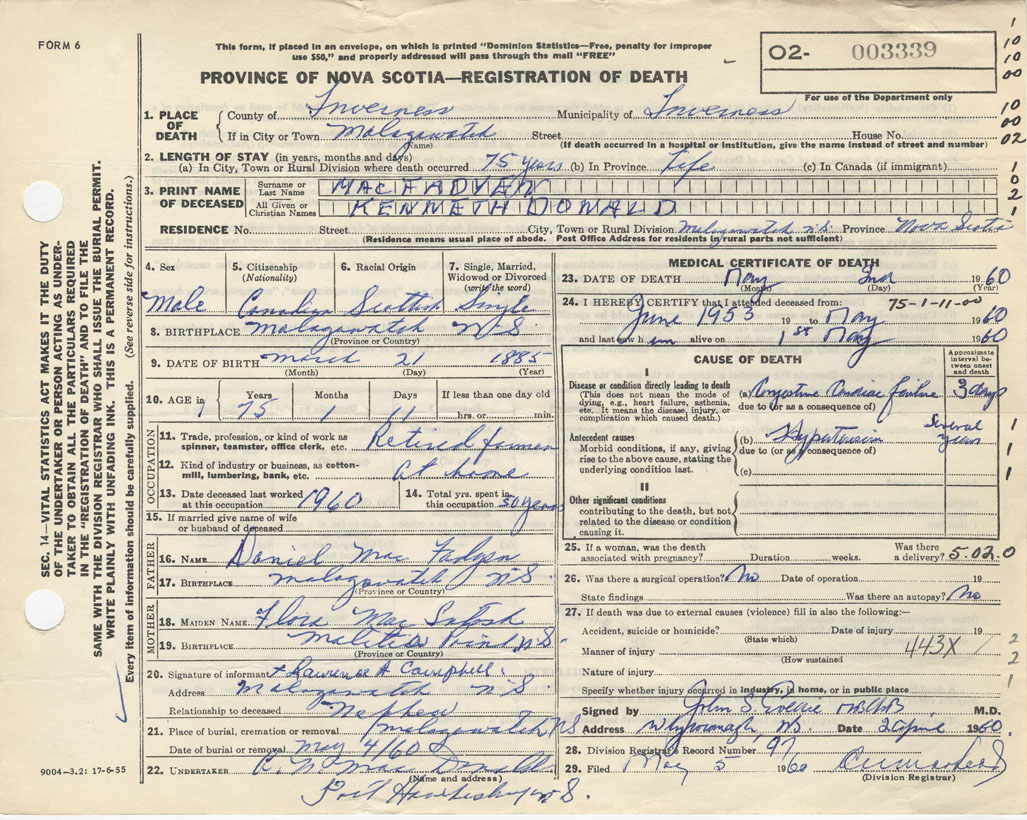 FORM 6
This form, if placed in an envelope, on which is printed "Dominion Statistics—Free, penalty for improper
use $50," and properly addressed will pass through the mail "FREE"
PROVINCE OF NOVA SCOTIA—REGISTRATION OF DEATH
02- 003339
For use of the Department only
1. PLACE OF DEATH
County of Inverness Municipality of Inverness
If in City or Town Malagawatch Street House No.
(Name) (If death occurred in a hospital or institution, give the name instead of street and number)
2. LENGTH OF STAY (in years, months and days)
(a) In City, Town or Rural Division where death occurred 75 years (b) In Province Life (c) In Canada (if immigrant)
3. PRINT NAME OF DECEASED
Surname or Last Name MACFADYEN
All Given or Christian Names KENNETH DONALD
RESIDENCE No. Street City, Town or Rural Division Malagawatch N.S. Province Nova Scotia
(Residence means usual place of abode. Post Office Address for residents in rural parts not sufficient)
SEC. 14—VITAL STATISTICS ACT MAKES IT THE DUTY
OF THE UNDERTAKER OR PERSON ACTING AS UNDER-
TAKER TO OBTAIN ALL THE PARTICULARS REQUIRED
IN THE "REGISTRATION OF DEATH" AND TO FILE THE
SAME WITH THE DIVISION REGISTRAR WHO SHALL ISSUE THE BURIAL PERMIT.
WRITE PLAINLY WITH UNFADING INK. THIS IS A PERMANENT RECORD.
Every item of information should be carefully supplied. (See reverse side for instructions.)
4. Sex
Male
5. Citizenship (Nationality)
Canadian
6. Racial Origin
Scottish
7. Single, Married, Widowed or Divorced (write the word)
Single
8. BIRTHPLACE Malagawatch N.S
(Province or Country)
9. DATE OF BIRTH March 21 1885
(Month) (Day) (Year)
10. AGE in Years Months Days If less than one day old
75 1 11 hrs. or min.
OCCUPATION
11. Trade, profession, or kind of work as spinner, teamster, office clerk, etc. Retired farmer
12. Kind of industry or business, as cotton-mill, lumbering, bank, etc. At home
13. Date deceased last worked at this occupation 1960
14. Total yrs. spent in this occupation 50 years
15. If married give name of wife or husband of deceased
FATHER
16. NAME Daniel Mac Fadyen
17. BIRTHPLACE Malagawatch N.S
(Province or Country)
MOTHER
18. MAIDEN NAME Flora Mac Intosh
19. BIRTHPLACE N.S.
(Province or Country)
20. Signature of informant Lawrence A Campbell
Address Malagawatch N.S
Relationship to deceased Nephew
21. Place of burial, cremation or removal Malagawatch NS
Date of burial or removal May 4/60
22. UNDERTAKER Mac Donald
(Name and address)
Port Hawkesbury N.S.
9004-3.2: 17-6-55
MEDICAL CERTIFICATE OF DEATH
23. DATE OF DEATH May 2nd 1960
(Month) (Day) (Year)
24. I HEREBY CERTIFY that I attended deceased from: 75-1-11-00
June 1953 19 to May 1960
and last saw him alive on 1st May 1960
CAUSE OF DEATH
Approximate interval between onset and death
I
Disease or condition directly leading to death
(This does not mean the mode of dying, e.g., heart failure, asthenia, etc. It means the disease, injury, or complication which caused death.)
(a) Congestive Cardiac failure 3 days
due to (or as a consequence of)
Antecedent causes
Morbid conditions, if any, giving rise to the above cause, stating the underlying condition last.
(b) Hypertension Several years
due to (or as a consequence of)
(c)
II
Other significant conditions
contributing to the death, but not related to the disease or condition causing it.
25. If a woman, was the death associated with pregnancy? Duration weeks. Was there a delivery? 5.02.0
26. Was there a surgical operation? No Date of operation 19
State findings Was there an autopsy? No
27. If death was due to external causes (violence) fill in also the following:—
Accident, suicide or homicide? Date of injury 19
(State which)
Manner of injury 443X
(How sustained
Nature of injury
Specify whether injury occurred in industry, in home, or in public place
Signed by John S. M.D.
Address Whycocomagh, N.S. Date 2 April 1960
28. Division Registrar's Record Number 97
29. Filed May 5 1960
(Division Registrar)
1
10
10
00
10
00
02
1
0
2
1
1
1
1
2
2
1